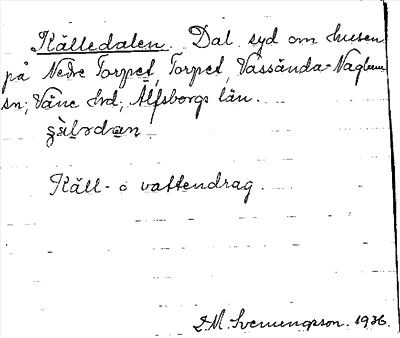 Källedalen. Dal syd om husen
på Nedre Torpet, Torpet, Vassända-Naglum
sn; Väne hd; Älfsborgs län.
Käll- o vattendrag.
D.M. Svenungsson. 1936.